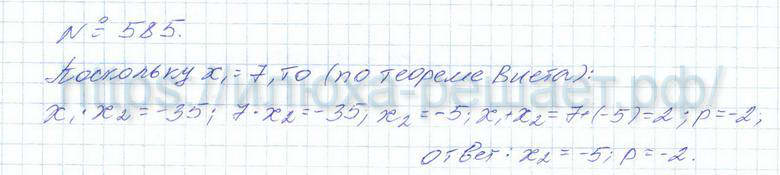 № 585.
Поскольку x₁ = 7, то (по теореме Виета):
x₁ · x₂ = -35; 7 · x₂ = -35; x₂ = -5; x₁ + x₂ = 7 + (-5) = 2; p = -2;
Ответ: x₂ = -5; p = -2.
https://илюха-решает.рф/